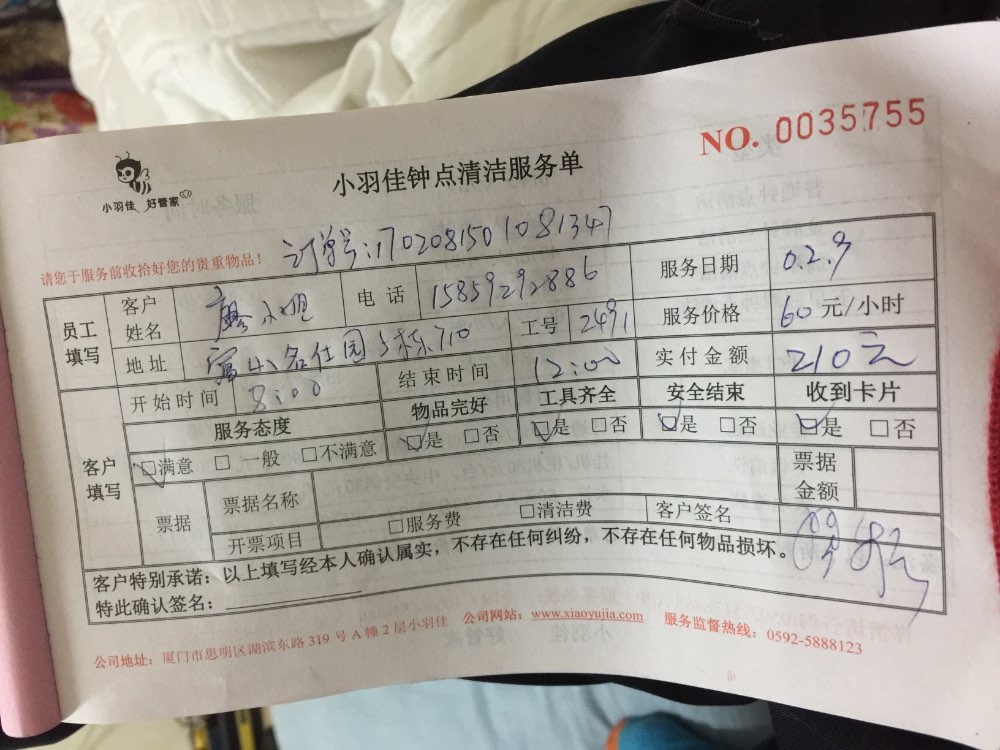 NO. 0035755
小羽佳 好管家
小羽佳钟点清洁服务单
请您于服务前收拾好您的贵重物品！
订单号:1702081501081347
员工填写 客户姓名 廖小姐 电话 15859292886 服务日期 02.9
地址 富山名仕园5栋710 工号 2491 服务价格 60元/小时
客户填写 开始时间 8:00 结束时间 12:00 实付金额 210元
服务态度 物品完好 工具齐全 安全结束 收到卡片
☑满意 □一般 □不满意 ☑是 □否 ☑是 □否 ☑是 □否 ☑是 □否
票据 票据名称 票据金额
开票项目 □服务费 □清洁费 客户签名
客户特别承诺：以上填写经本人确认属实，不存在任何纠纷，不存在任何物品损坏。
特此确认签名：
公司地址：厦门市思明区湖滨东路 319 号 A 幢 2 层小羽佳 公司网站：www.xiaoyujia.com 服务监督热线：0592-5888123